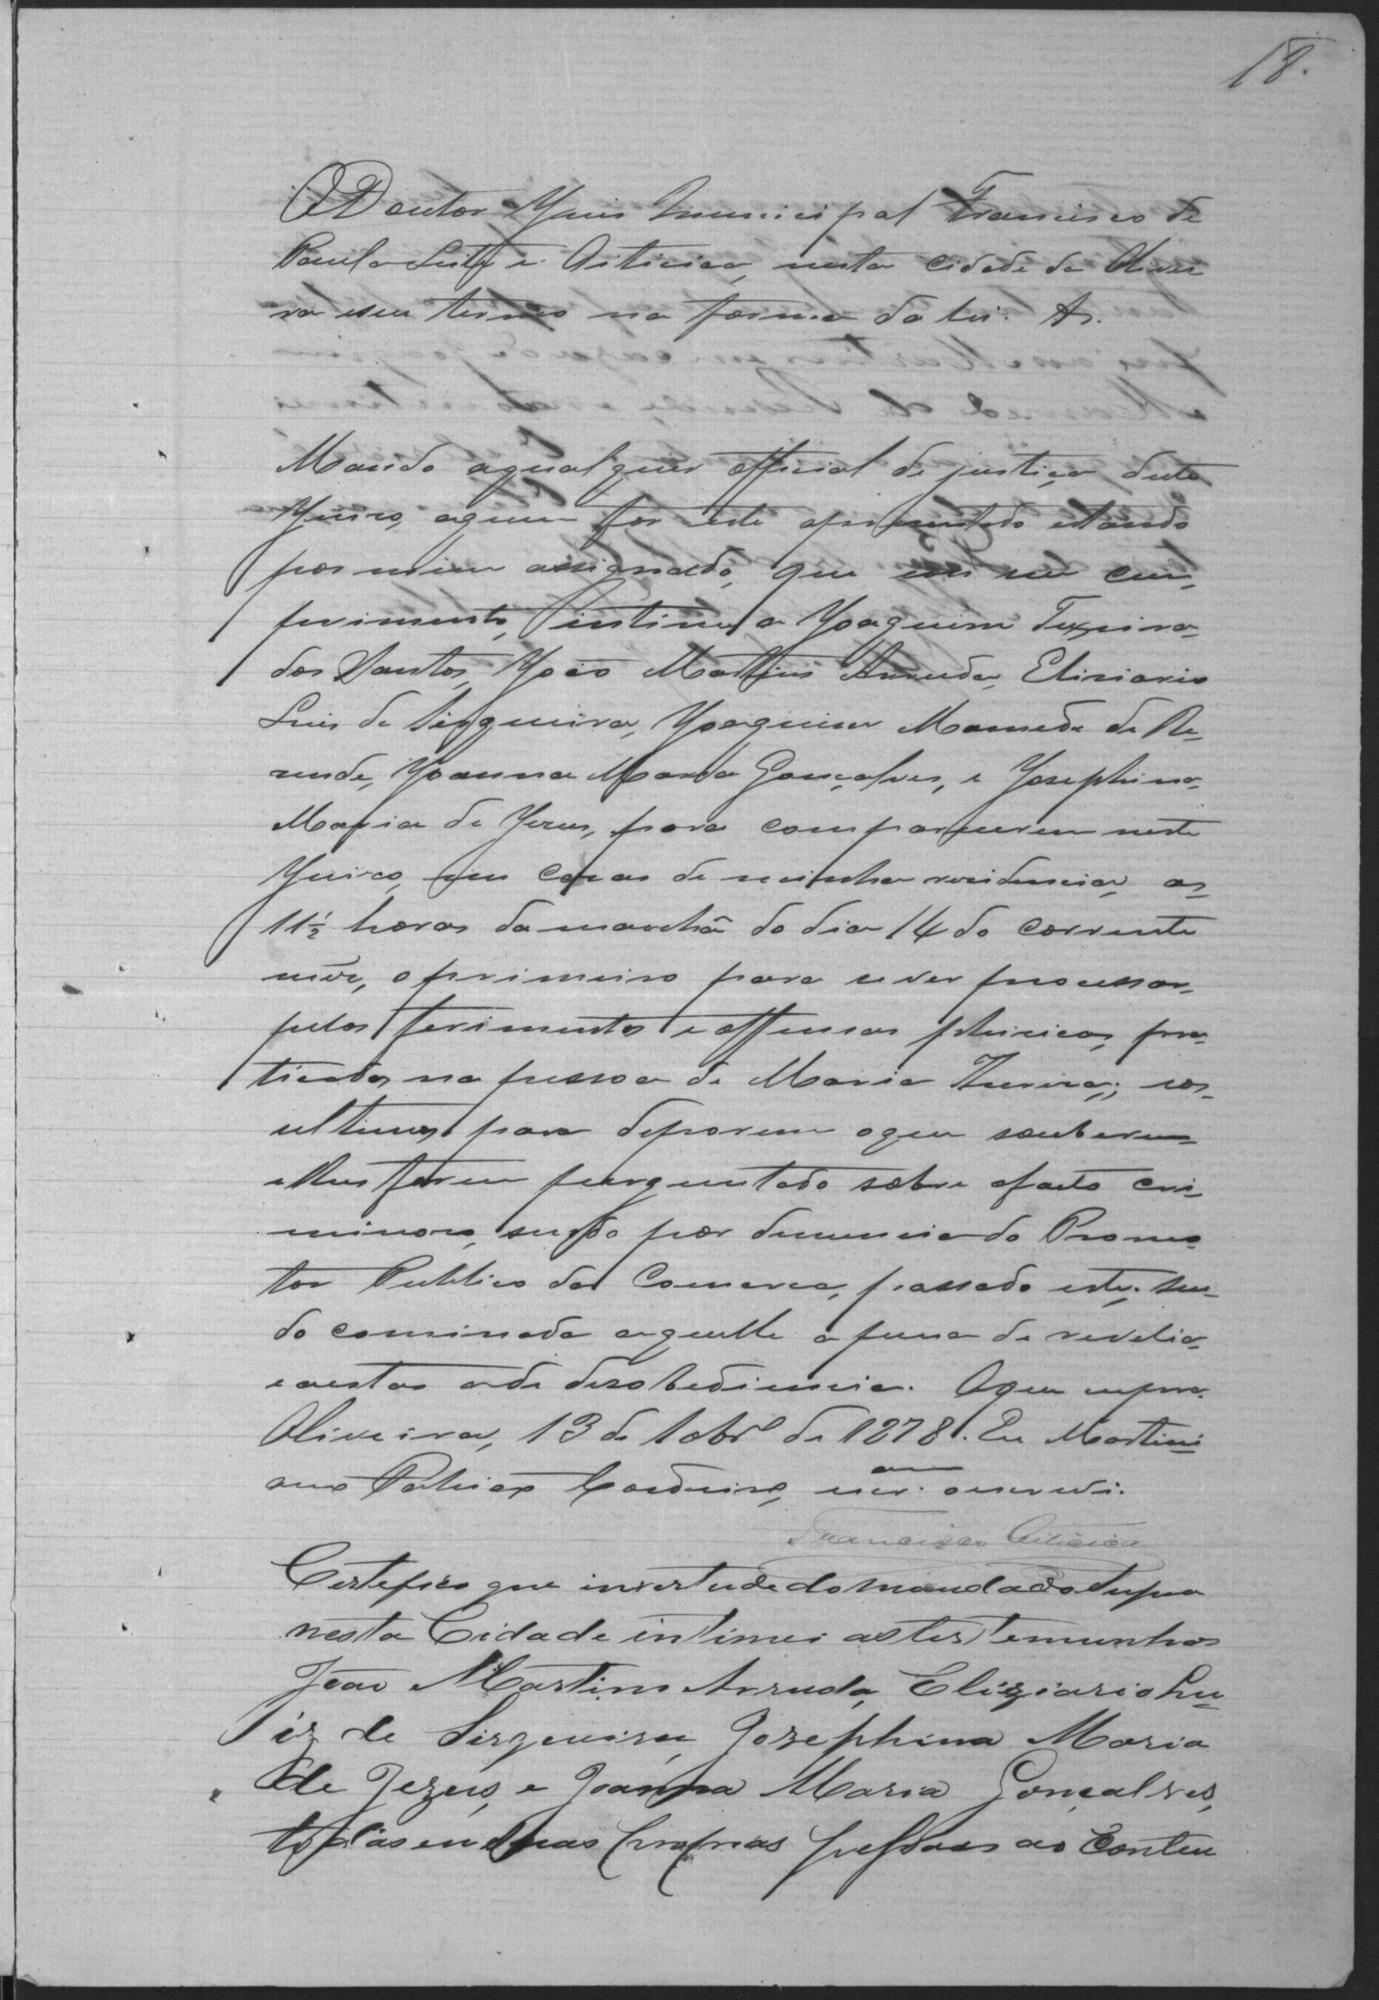 18.
O Doutor Juis Municipal Francisco de
Paula Leite e Oiticica, nesta cidade de Olivei
ra eseu termo na forma da lei. Az.
Mando aqualquer official de justiça deste
Juiso, aquem for este apresentado estando
por mim assignado, que em seu cum,
primento, intime a Joaquim Texeira
dos Santos, João Martins Arruda, Elisiario
Luis de Sirqueira, Joaquim Mamede de Re-
sende, Joanna Maria Gonçalves, e Josephina
Maria de Jesus, para comparecerem neste
Juiso, em casas de minha residencia, as
11 1/2 horas da manhã do dia 14 do corrente
mês, o primeiro para se ver processar
pelos ferimentos e offensas phisicas, pra-
ticados na pessoa de Maria ; eos
ultimos para deporem oque souberem
elhes forem perguntado sobre ofacto cri-
minoso, sendo por denuncia do Promo
tor Publico da Comarca, passado este; sen-
do cominada aquelle a pena de revelia,
eaestas ade desobediencia. Oque cumpra.
Oliveira, 13 de 1 de 1878. Eu Martini
ano Cordeiro, escr. am oescrevi.
Francisco Oiticica
Certefico que invertude do mandado Supra
nesta Cidade intimei astestemunhas
João Martins Arruda, Eliziario Lu-
iz de Sirqueira, Jozephina Maria
de Jezus, e Joanna Maria Gonçalves,
todas em Suas proprias pessoas ao Conteu